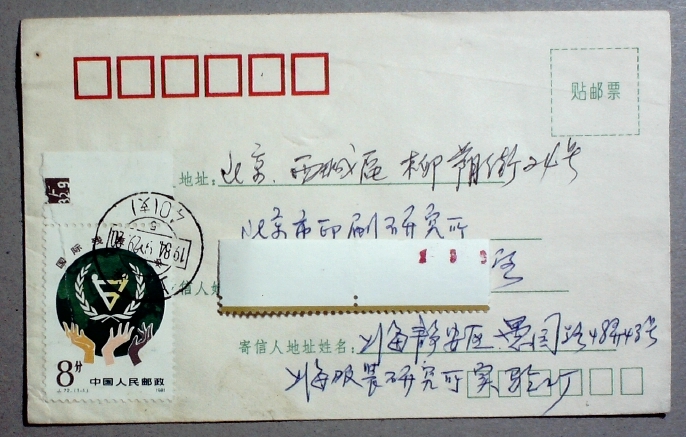 贴邮票
地址：北京．西城区 柳荫街24号
北京市印刷研究所
信人姓
寄信人地址姓名：上海静安区 愚园路48弄43号
上海服装研究所实验厂
国际
8分
中国人民邮政
1981